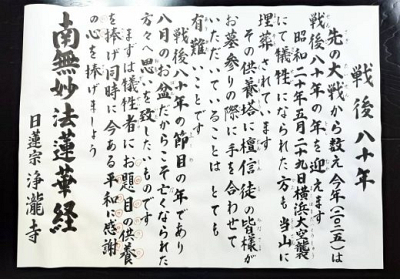 戦後八十年
先の大戦から数え今年(二〇二五)は
戦後八十年の年を迎えます
昭和二十年五月二十九日横浜大空襲
にて犠牲になられた方も当山に
埋葬されています
その供養塔に檀信徒の皆様が
お墓参りの際に手を合わせて
いただいていることはとても
有難いことです
戦後八十年の節目の年であり
八月のお盆だからこそ亡くなられた
方々へ思いを致したいものです
まずは犠牲者にお題目の供養
を捧げ同時に今ある平和に感謝
の心を捧げましょう
南無妙法蓮華経
日蓮宗 浄瀧寺